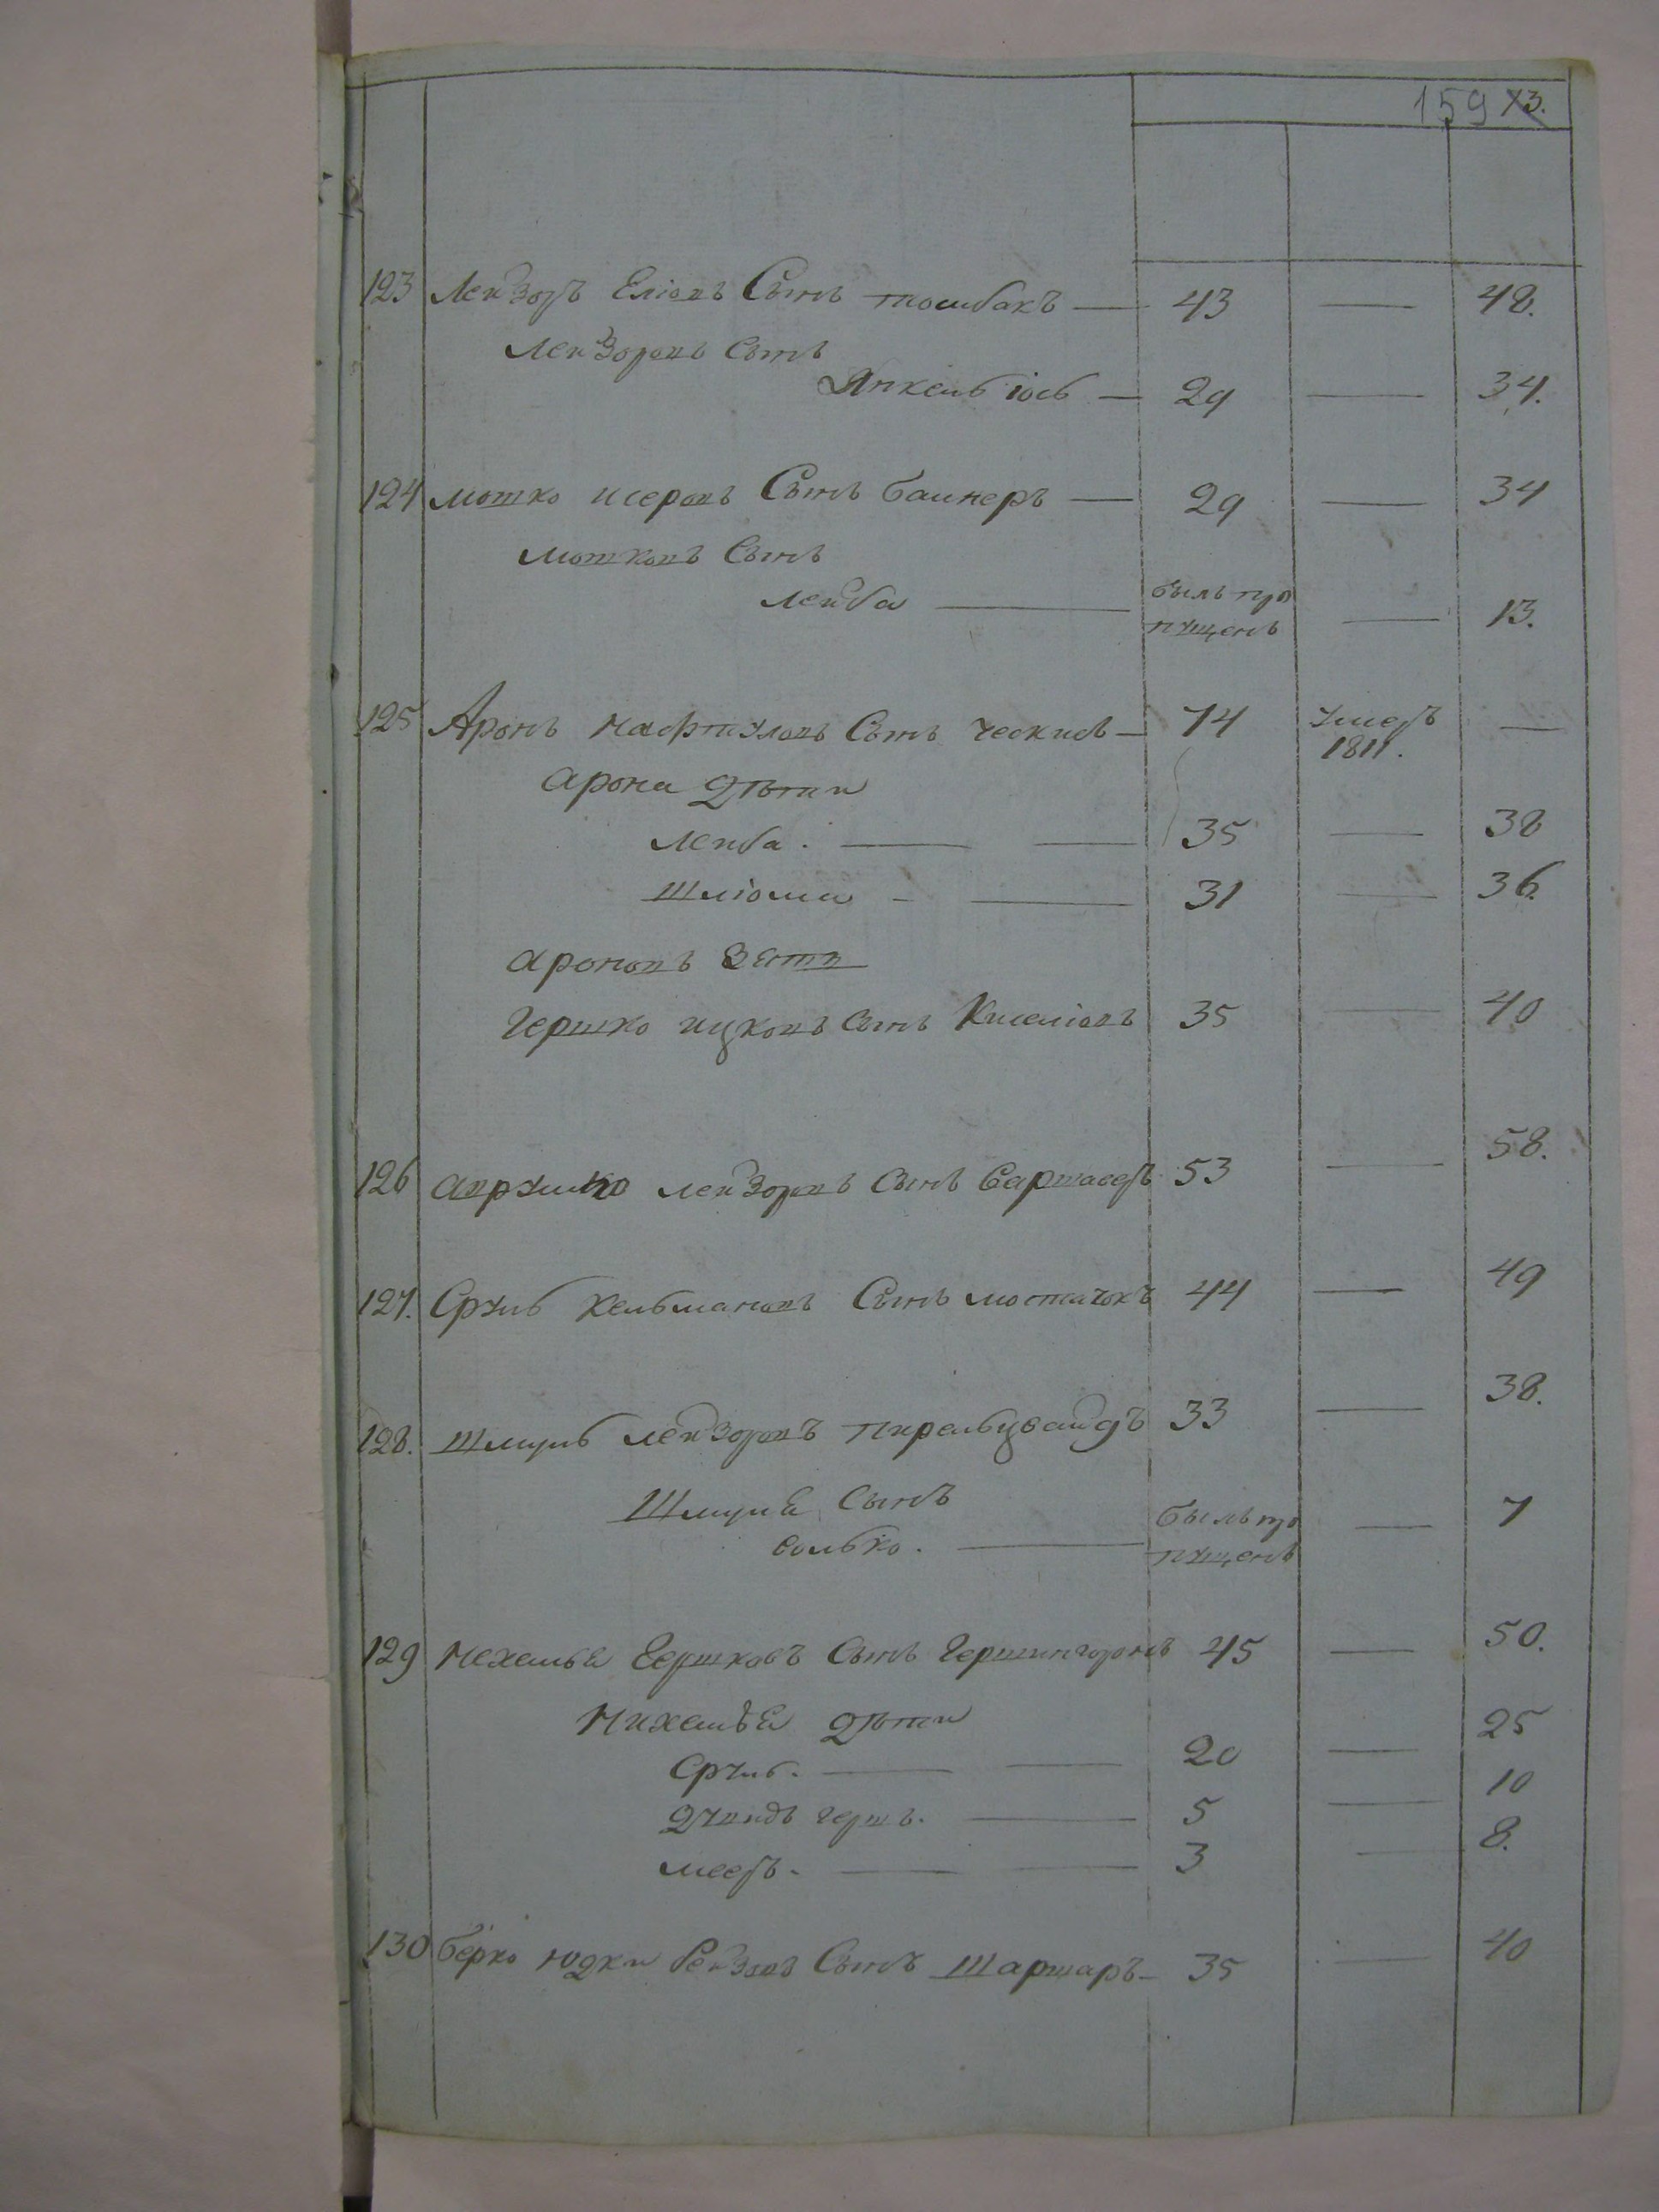 159 13.
123 Лейзоръ Еліовъ Сынъ томбакъ — 43 — 48.
Лейзоровъ Сынъ
Янкель іось — 29 — 34.
124 мотко исеровъ Сынъ баинеръ — 29 — 34
мотковъ Сынъ
лейба — былъ про — 13.
пущенъ
125 Аронъ нафтуловъ Сынъ ческисъ — 74 умеръ —
1811.
арона дѣти
Лейба. — 35 — 38
Шліома — 31 — 36.
ароновъ зять
Гершко ицковъ сынъ Киселіовъ 35 — 40
126 аврумко лейзоровъ Сынъ 53 — 58.
127. Сруль кельмановъ Сынъ 44 — 49
128. Шмуль лейзоровъ перельцвайдъ 33 — 38.
Шмуля Сынъ
волько. — былъ про — 7
пущенъ
129 Нехемья Гершковъ Сынъ Гершингоронъ 45 — 50.
Нихемья дѣти
Сруль. — 20 — 25
дувидъ гершъ. — 5 — 10
мееръ. — 3 — 8.
130 берко юдки Сынъ Шаршаръ — 35 — 40